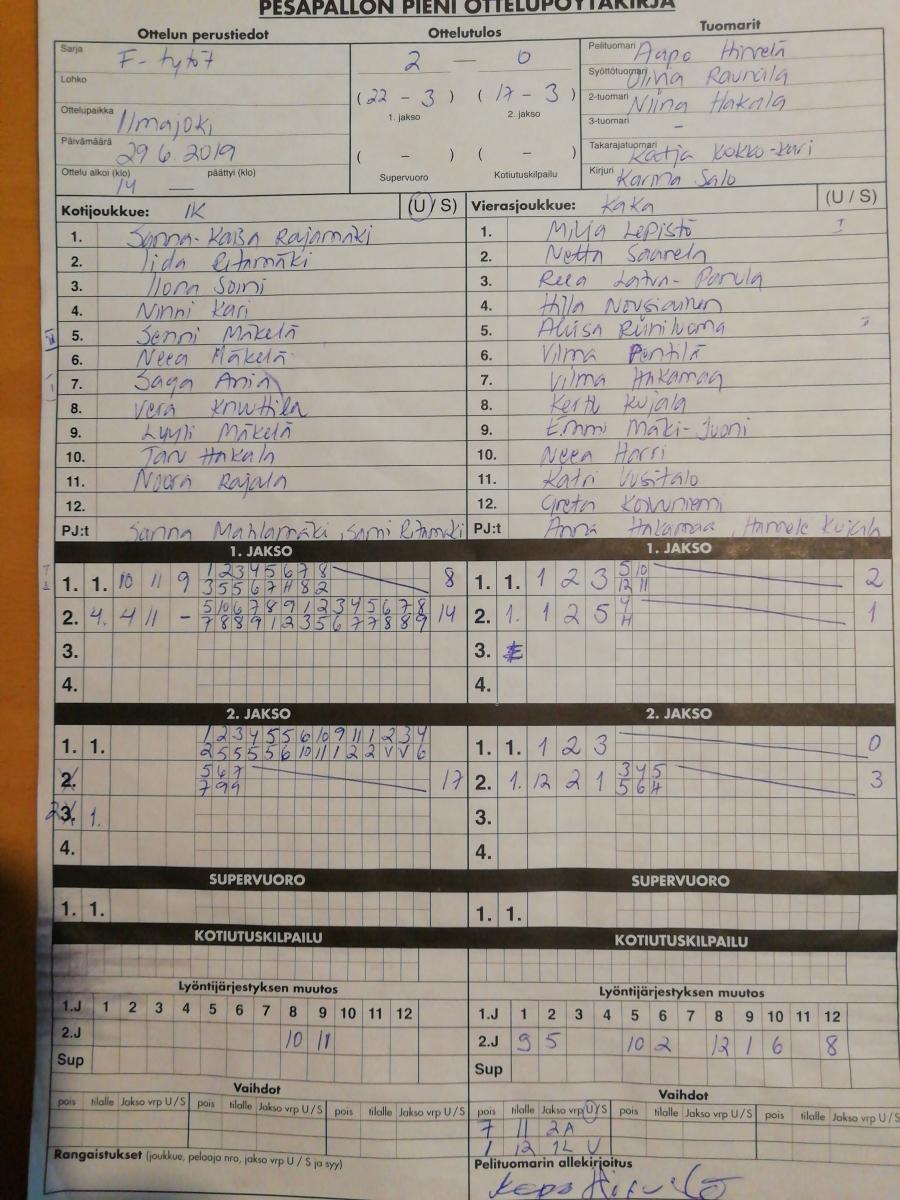 PESÄPALLON PIENI OTTELUPÖYTÄKIRJA
Ottelun perustiedot
Sarja F-tytöt
Lohko
Ottelupaikka Ilmajoki
Päivämäärä 29.6.2019
Ottelu alkoi (klo) 14 — päättyi (klo)
Ottelutulos
2 — 0
(22 - 3) (17 - 3)
1. jakso 2. jakso
( - ) ( - )
Supervuoro Kotiutuskilpailu
Tuomarit
Pelituomari Aapo Hirvelä
Syöttötuomari Olivia Raunala
2-tuomari Niina Hakala
3-tuomari -
Takarajatuomari Katja Kokko-Kari
Kirjuri Karina Salo
Kotijoukkue: IK (U / S)
1. Sanna-Kaisa Rajamäki
2. Iida Ritamäki
3. Ilona Soini
4. Ninni Kari
5. Senni Mäkelä
6. Neea Mäkelä
7. Saga
8. Vera Knuuttila
9. Lyyli Mäkelä
10. Taru Hakala
11. Noora Rajala
12.
PJ:t Sanna Mahlamäki, Sami Ritamäki
Vierasjoukkue: KaKa (U / S)
1. Milja Lepistö I
2. Netta Saarela
3. Reea Latva-Panula
4. Hilla Nousiainen
5. Aliisa Riiniluoma
6. Vilma Penttilä
7. Vilma Hakamaa
8. Kerttu Kujala
9. Emmi Mäki-Juoni
10. Neea Harri
11. Katri Uusitalo
12. Greta Koivuniemi
PJ:t Anna Hakamaa, Hannele Kujala
1. JAKSO
1. 1. 10 11 9 1 2 3 4 5 6 7 8 8
3 5 5 6 7 H 8 2
2. 4. 4 11 - 5 10 6 7 8 9 1 2 3 4 5 6 7 8 14
7 8 8 9 1 2 3 5 6 7 7 8 8 9
3.
4.
1. JAKSO
1. 1. 1 2 3 5 10 2
12 11
2. 1. 1 2 5 4 1
H
3.
4.
2. JAKSO
1. 1. 1 2 3 4 5 5 6 10 9 11 1 2 3 4
2 5 5 5 5 6 10 11 1 2 2 V V 6
2. 5 6 7 17
7 9 9
3. 1.
4.
2. JAKSO
1. 1. 1 2 3 0
2. 1. 12 2 1 3 4 5 3
5 6 H
3.
4.
SUPERVUORO
1. 1.
SUPERVUORO
1. 1.
KOTIUTUSKILPAILU
KOTIUTUSKILPAILU
Lyöntijärjestyksen muutos
1.J 1 2 3 4 5 6 7 8 9 10 11 12
2.J 10 11
Sup
Lyöntijärjestyksen muutos
1.J 1 2 3 4 5 6 7 8 9 10 11 12
2.J 9 5 10 2 12 1 6 8
Sup
Vaihdot
pois tilalle Jakso vrp U / S pois tilalle Jakso vrp U / S pois tilalle Jakso vrp U / S
Vaihdot
pois tilalle Jakso vrp U/S pois tilalle Jakso vrp U / S pois tilalle Jakso vrp U / S
7 11 2A
1 12 1L U
Rangaistukset (joukkue, pelaaja nro, jakso vrp U / S ja syy)
Pelituomarin allekirjoitus